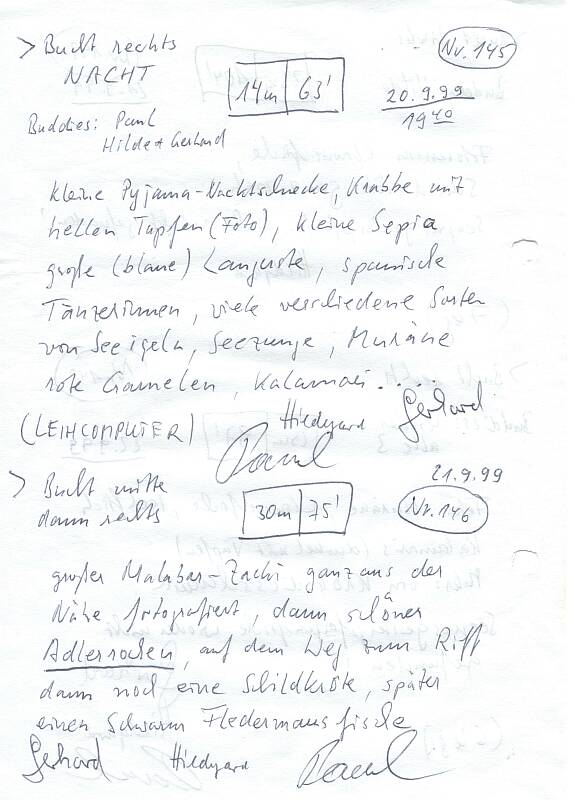 > Bucht rechts
NACHT
14m 63'
Nr. 145
20.9.99
19 40
Buddies: Paul
Hilde + Gerhard
kleine Pyjama-Nachtschnecke, Krabbe mit
hellen Tupfen (Foto), kleine Sepia
große (blaue) Languste, spanische
Tänzerinnen, viele verschiedene Sorten
von Seeigeln, Seezunge, Muräne
rote Garnelen, Kalamari.....
(LEIHCOMPUTER)
Hildegard
Gerhard
Paul
> Bucht mitte
dann rechts
30m 75'
21.9.99
Nr. 146
großer Malabar-Zacki ganz aus der
Nähe fotografiert, dann schöner
Adlerrochen, auf dem Weg zum Riff
dann noch eine Schildkröte, später
einen Schwarm Fledermausfische
Gerhard Hildegard Paul